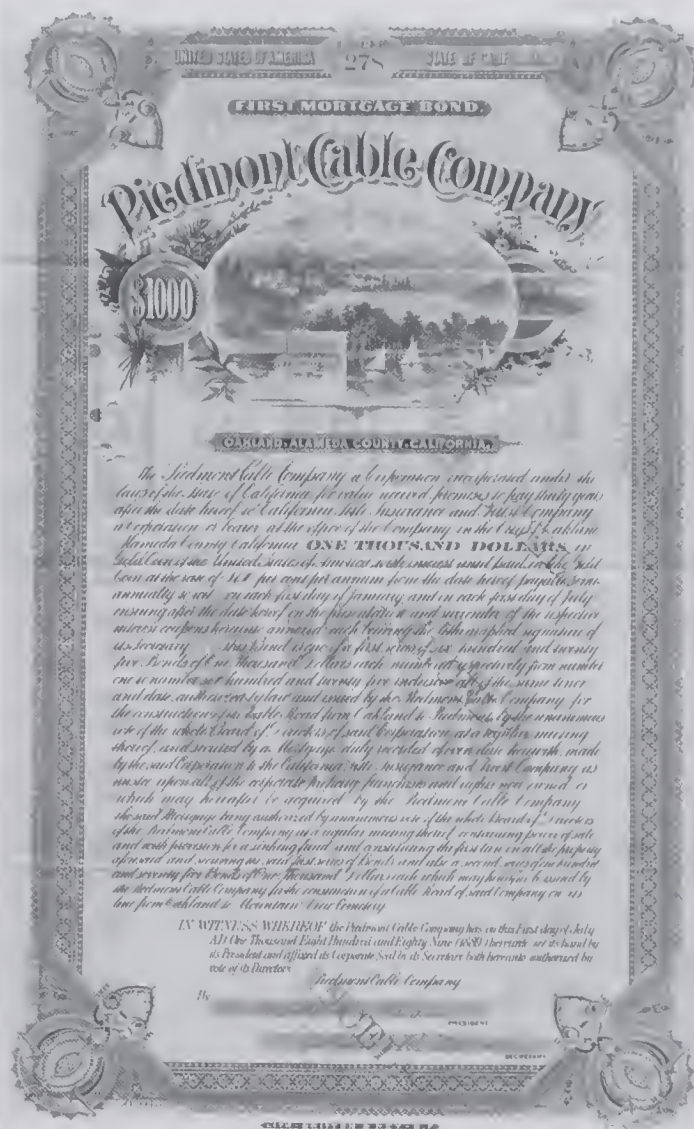 UNITED STATES OF AMERICA
278
STATE OF
FIRST MORTGAGE BOND.
Piedmont Cable Company
$1000
OAKLAND, ALAMEDA COUNTY, CALIFORNIA.
The Piedmont Cable Company a Corporation incorporated under the
laws of the State of California for value received promises to pay thirty years
after the date hereof to California Title Insurance and Trust Company
a Corporation or bearer at the office of the Company in the City of Oakland
Alameda County California ONE THOUSAND DOLLARS in
Gold Coin of the United States of America with interest in like Gold
Coin at the rate of per cent per annum from the date hereof payable semi
annually on each first day of January and on each first day of July
ensuing after the date hereof on the presentation and surrender of the respective
interest coupons hereunto annexed each bearing the lithographed signature of
its Secretary This Bond is one of a first series of six hundred and twenty
five Bonds of One Thousand Dollars each numbered respectively from number
one to number six hundred and twenty five inclusive all of the same tenor
and date, authorized by law and issued by the Piedmont Cable Company for
the construction of its Cable Road from Oakland to Piedmont, by the unanimous
vote of the whole Board of Directors of said Corporation at a regular meeting
thereof, and secured by a Mortgage duly recorded of even date herewith, made
by the said Corporation to the California Title Insurance and Trust Company as
trustee upon all of the corporate property franchises and rights now owned or
which may hereafter be acquired by the Piedmont Cable Company
the said Mortgage being authorized by unanimous vote of the whole Board of Directors
of the Piedmont Cable Company in a regular meeting thereof, containing power of sale
and with provision for a sinking fund and constituting the first lien on all the property
aforesaid and securing the said first series of Bonds and also a second series of one hundred
and seventy five Bonds of One Thousand Dollars each which may hereafter be issued by
the Piedmont Cable Company for the construction of a Cable Road of said Company on its
line from Oakland to Mountain View Cemetery
IN WITNESS WHEREOF the Piedmont Cable Company has on this First day of July
AD One Thousand Eight Hundred and Eighty Nine (1889) hereunto set its hand by
its President and affixed its Corporate Seal by its Secretary both hereunto authorized by
vote of its Directors
Piedmont Cable Company
By
PRESIDENT
SECRETARY